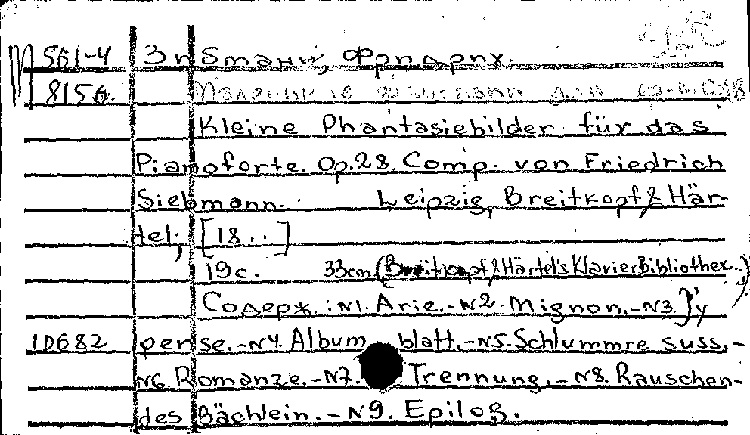 561-4 Зибманн, Фридрих.
8156.
Kleine Phantasiebilder für das
Pianoforte. Op.28. Comp. von Friedrich
Siebmann. Leipzig, Breitkopf & Här-
tel; [18..]
19c. 33cm (Breitkopf & Härtel's Klavier Bibliothek.)
Содерж.: N1. Arie.-N2. Mignon.-N3.
10682 pense.-N4. Albumblatt.-N5. Schlummre suss.-
N6 Romanze.-N7. Trennung.-N8. Rauschen-
des Bächlein.-N9. Epilog.